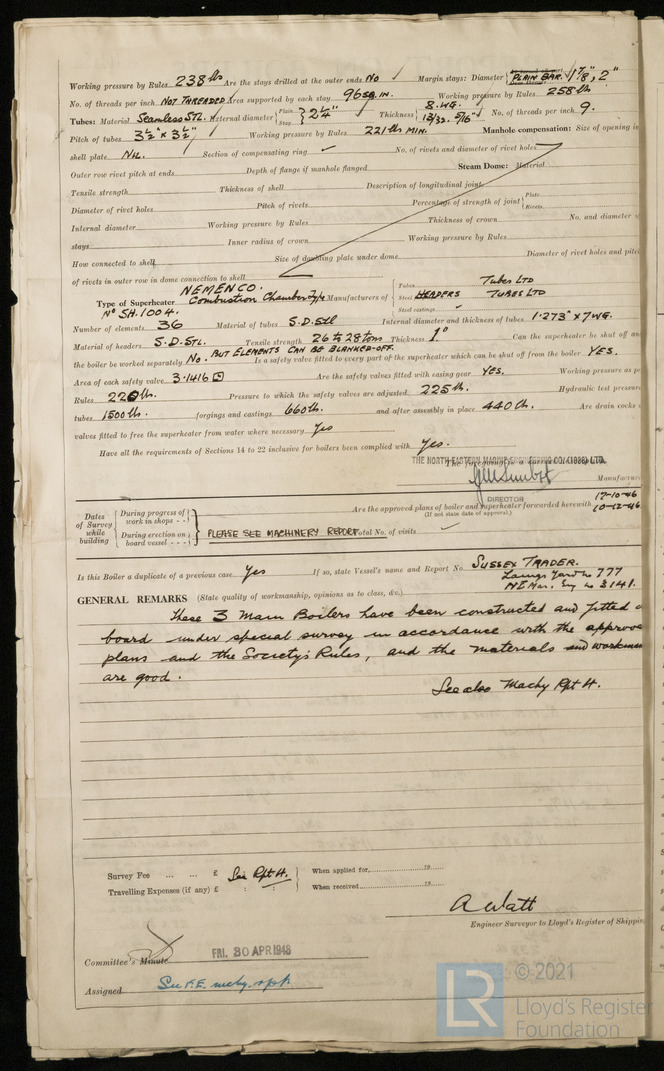 Working pressure by Rules 238 lbs Are the stays drilled at the outer ends No Margin stays: Diameter { PLAIN BAR. 1 7/8", 2"
No. of threads per inch NOT THREADED Area supported by each stay 96 SQ. IN. Working pressure by Rules 258 lbs
Tubes: Material Seamless STL. External diameter { Plain Stay } 2 1/4" Thickness { 8.WG. 13/32. 5/16" No. of threads per inch 9.
Pitch of tubes 3 1/2" x 3 1/2" Working pressure by Rules 221 lbs MIN. Manhole compensation: Size of opening in
shell plate NIL. Section of compensating ring No. of rivets and diameter of rivet holes
Outer row rivet pitch at ends Depth of flange if manhole flanged Steam Dome: Material
Tensile strength Thickness of shell Description of longitudinal joint
Diameter of rivet holes Pitch of rivets Percentage of strength of joint { Plate Rivets
Internal diameter Working pressure by Rules Thickness of crown No. and diameter
stays Inner radius of crown Working pressure by Rules
How connected to shell Size of doubling plate under dome Diameter of rivet holes and pitch
of rivets in outer row in dome connection to shell
NEMENCO.
Type of Superheater Combustion Chamber Type Manufacturers of { Tubes Tubes LTD
Steel HEADERS TUBES LTD
Steel castings
No SH. 1004.
Number of elements 36 Material of tubes S.D. Stl Internal diameter and thickness of tubes 1.273" x 7WG.
Material of headers S.D. STL. Tensile strength 26 to 28 tons Thickness 1" Can the superheater be shut off and
the boiler be worked separately No. BUT ELEMENTS CAN BE BLANKED-OFF. Is a safety valve fitted to every part of the superheater which can be shut off from the boiler YES.
Area of each safety valve 3.1416 Are the safety valves fitted with easing gear YES. Working pressure as per
Rules 220 lbs. Pressure to which the safety valves are adjusted 225 lb. Hydraulic test pressure
tubes 1500 lbs. forgings and castings 660 lb. and after assembly in place 440 lb. Are drain cocks
valves fitted to free the superheater from water where necessary Yes
Have all the requirements of Sections 14 to 22 inclusive for boilers been complied with Yes.
THE NORTH EASTERN MARINE ENGINEERING CO. (1938) LTD.
DIRECTOR
Manufacturer
Dates of Survey while building { During progress of work in shops - - During erection on board vessel - - - } PLEASE SEE MACHINERY REPORT Total No. of visits
Are the approved plans of boiler and superheater forwarded herewith 17-10-46
(If not state date of approval.) 10-12-46
Is this Boiler a duplicate of a previous case Yes If so, state Vessel's name and Report No. SUSSEX TRADER.
Laings Yard No 777
NE Mar. Eng No 3141.
GENERAL REMARKS (State quality of workmanship, opinions as to class, &c.)
These 3 Main Boilers have been constructed and fitted
board under special survey in accordance with the approved
plans and the Society's Rules, and the materials and workman
are good.
See also Machy Rpt 4.
Survey Fee ... ... £ See Rpt 4. When applied for, 19
Travelling Expenses (if any) £ : : When received 19
A Watt
Engineer Surveyor to Lloyd's Register of Shipping
Committee's Minute FRI. 30 APR 1948
Assigned See F.E. mchy. rpt.
LR © 2021
Lloyd's Register
Foundation